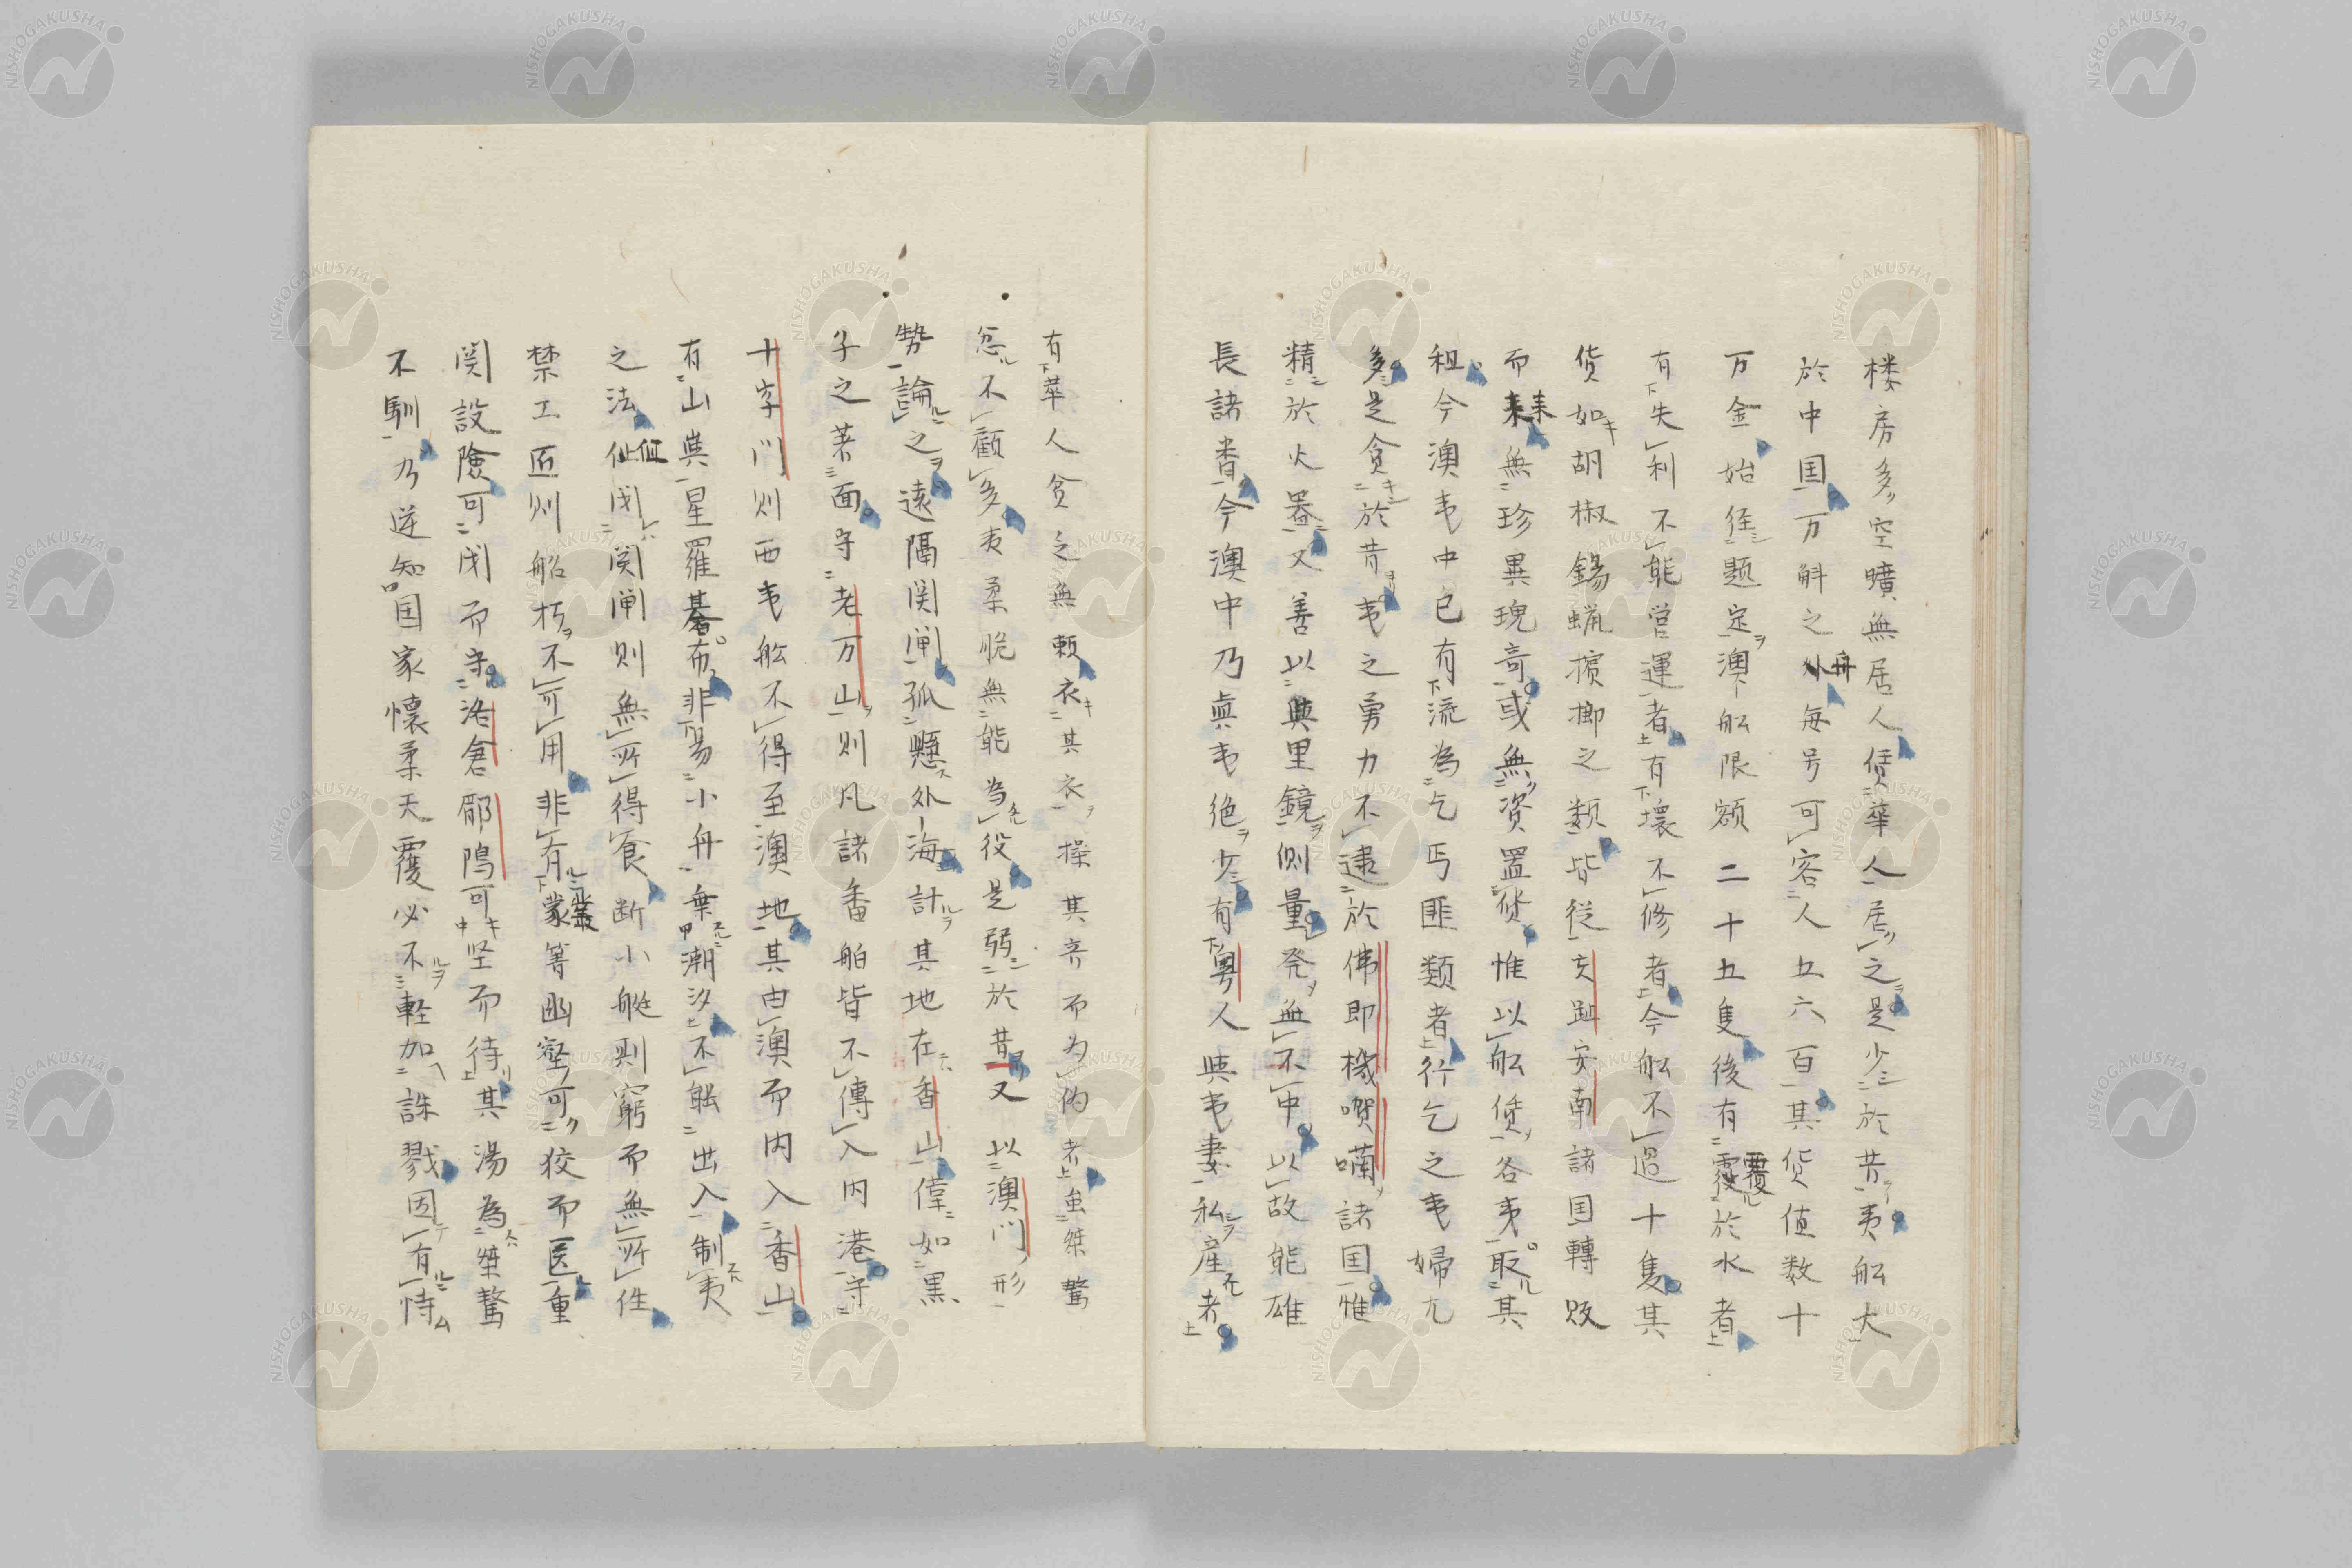 楼房多空曠無居人賃華人居之是少於昔夷船大
於中国万斛之舟每号可容人五六百其貨値数十
万金始経題定澳船限額二十五隻後有覆於水者
有失利不能営運者有壊不修者今船不過十隻其
貨如胡椒錫蝋檳榔之類皆従交趾安南諸国轉販
而来無珍異瑰奇或無資置貨惟以船賃各夷取其
租今澳夷中已有流為乞丐匪類者行乞之夷婦尤
多是貪於昔夷之勇力不逮於佛即機喫喃諸国惟
精於火器又善以典里鏡測量発無不中以故能雄
長諸番今澳中乃眞夷絶少有粤人與夷妻私産者
有華人貧乏無頼衣其衣操其音而为伪者虽桀驁
忿不顧多夷柔脆無能為役是弱於昔又以澳門形
勢論之遠隔関閘孤懸外海計其地在香山僅如黒
子之著面守老万山則凡諸番舶皆不傳入内港守
十字門則西夷舩不得至澳地其由澳而内入香山
有山與星羅碁布非易小舟乗潮汐不能出入制夷
之法但閉関閘則無所得食断小艇則窮而無所住
禁工匠則船朽不可用非有叢箐幽壑可狡而匿重
関設険可閉而守洛倉郿隝可坚而待其湯為桀驁
不馴乃逆知国家懐柔天覆必不軽加誅戮因有恃